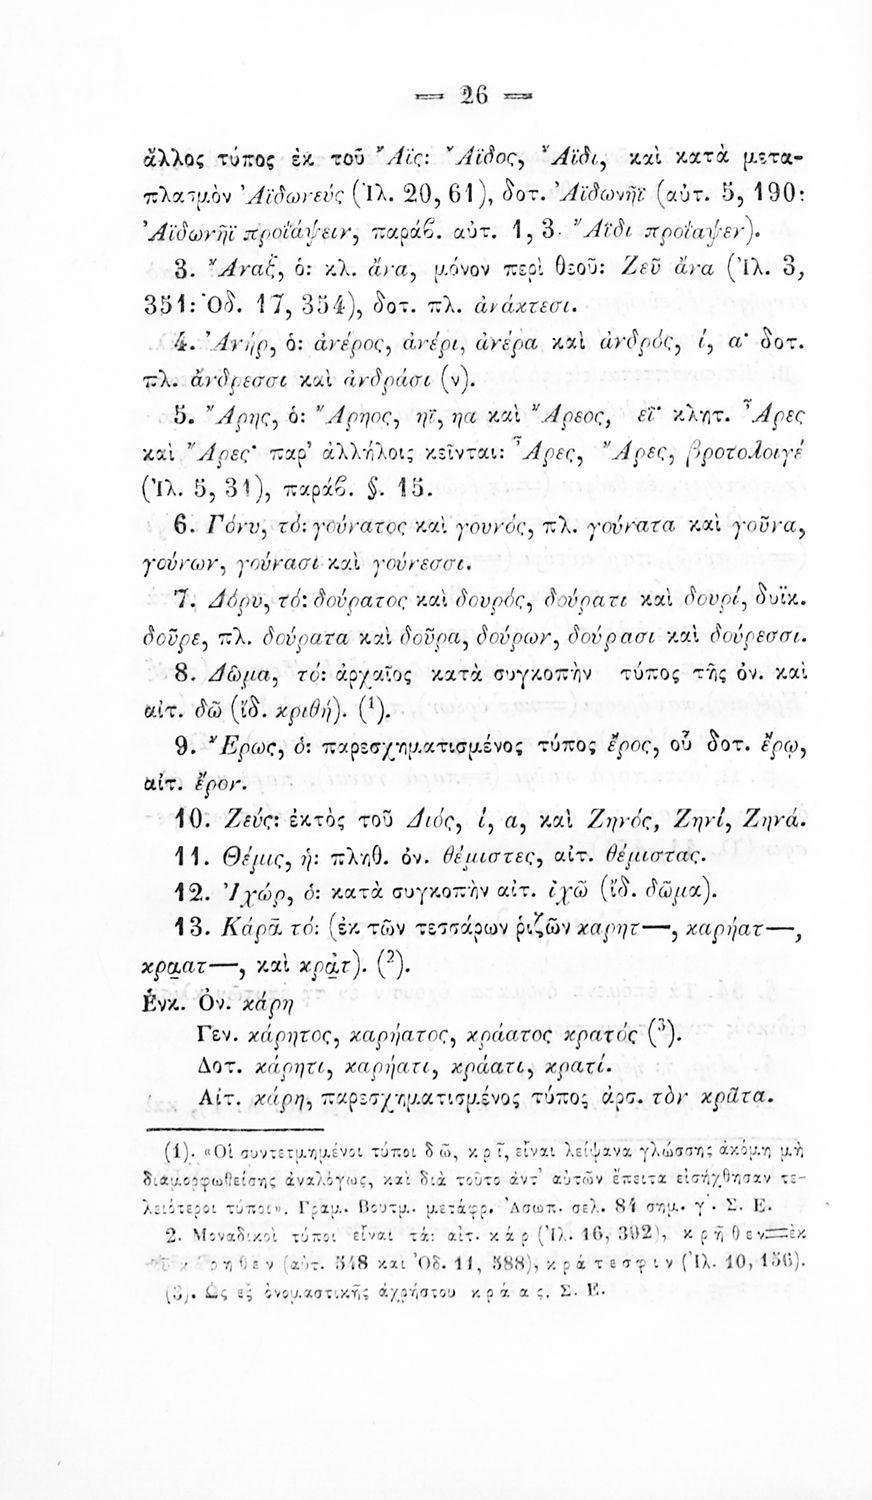 — 26 —
ἄλλος τύπος ἐκ τοῦ Ἄϊς: Ἄϊδος, Ἄϊδι, καὶ κατὰ μετα-
πλασμὸν Ἀϊδωνεύς (Ἰλ. 20, 61), δοτ. Ἀϊδωνῆϊ (αὐτ. 5, 190:
Ἀϊδωνῆϊ προϊάψειν, παράβ. αὐτ. 1, 3· Ἄϊδι προΐαψεν).
3. Ἄναξ, ὁ: κλ. ἄνα, μόνον περὶ θεοῦ: Ζεῦ ἄνα (Ἰλ. 3,
351: Ὀδ. 17, 354), δοτ. πλ. ἀνάκτεσι.
4. Ἀνήρ, ὁ: ἀνέρος, ἀνέρι, ἀνέρα καὶ ἀνδρός, ί, α· δοτ.
πλ. ἄνδρεσσι καὶ ἀνδράσι (ν).
5. Ἄρης, ὁ: Ἄρηος, ηϊ, ηα καὶ Ἄρεος, εϊ· κλητ. Ἆρες
καὶ Ἄρες· παρ' ἀλλήλοις κεῖνται: Ἆρες, Ἄρες, βροτολοιγέ
(Ἰλ. 5, 31), παράβ. §. 15.
6. Γόνυ, τό: γούνατος καὶ γουνός, πλ. γούνατα καὶ γοῦνα,
γούνων, γούνασι καὶ γούνεσσι.
7. Δόρυ, τό: δούρατος καὶ δουρός, δούρατι καὶ δουρί, δυϊκ.
δοῦρε, πλ. δούρατα καὶ δοῦρα, δούρων, δούρασι καὶ δούρεσσι.
8. Δῶμα, τό: ἀρχαῖος κατὰ συγκοπὴν τύπος τῆς ὀν. καὶ
αἰτ. δῶ (ἴδ. κριθή). (¹).
9. Ἔρως, ὁ: παρεσχηματισμένος τύπος ἔρος, οὗ δοτ. ἔρῳ,
αἰτ. ἔρον.
10. Ζεύς: ἐκτὸς τοῦ Διός, ί, α, καὶ Ζηνός, Ζηνί, Ζηνά.
11. Θέμις, ἡ: πληθ. ὀν. θέμιστες, αἰτ. θέμιστας.
12. Ἰχώρ, ὁ: κατὰ συγκοπὴν αἰτ. ἰχῶ (ἴδ. δῶμα).
13. Κάρα̃ τό: (ἐκ τῶν τεσσάρων ῥιζῶν καρητ—, καρήατ—,
κρᾳατ—, καὶ κρᾳτ). (²).
Ἑνκ. Ὀν. κάρη
Γεν. κάρητος, καρήατος, κράατος κρατός (³).
Δοτ. κάρητι, καρήατι, κράατι, κρατί.
Αἰτ. κάρη, παρεσχηματισμένος τύπος ἀρσ. τὸν κρᾶτα.
(1). «Οἱ συντετμημένοι τύποι δῶ, κρῖ, εἶναι λείψανα γλώσσης ἀκόμη μὴ
διαμορφωθείσης ἀναλόγως, καὶ διὰ τοῦτο ἀντ' αὐτῶν ἔπειτα εἰσήχθησαν τε-
λειότεροι τύποι». Γραμ. Βουτμ. μετάφρ. Ἀσωπ. σελ. 84 σημ. γ'. Σ. Ε.
2. Μοναδικοὶ τύποι εἶναι τά: αἰτ. κάρ (Ἰλ. 16, 392), κρῆθεν=ἐκ
κάρηθεν (αὐτ. 548 καὶ Ὀδ. 11, 588), κράτεσφιν (Ἰλ. 10, 156).
(3). Ὡς ἐξ ὀνομαστικῆς ἀχρήστου κράας. Σ. Ε.